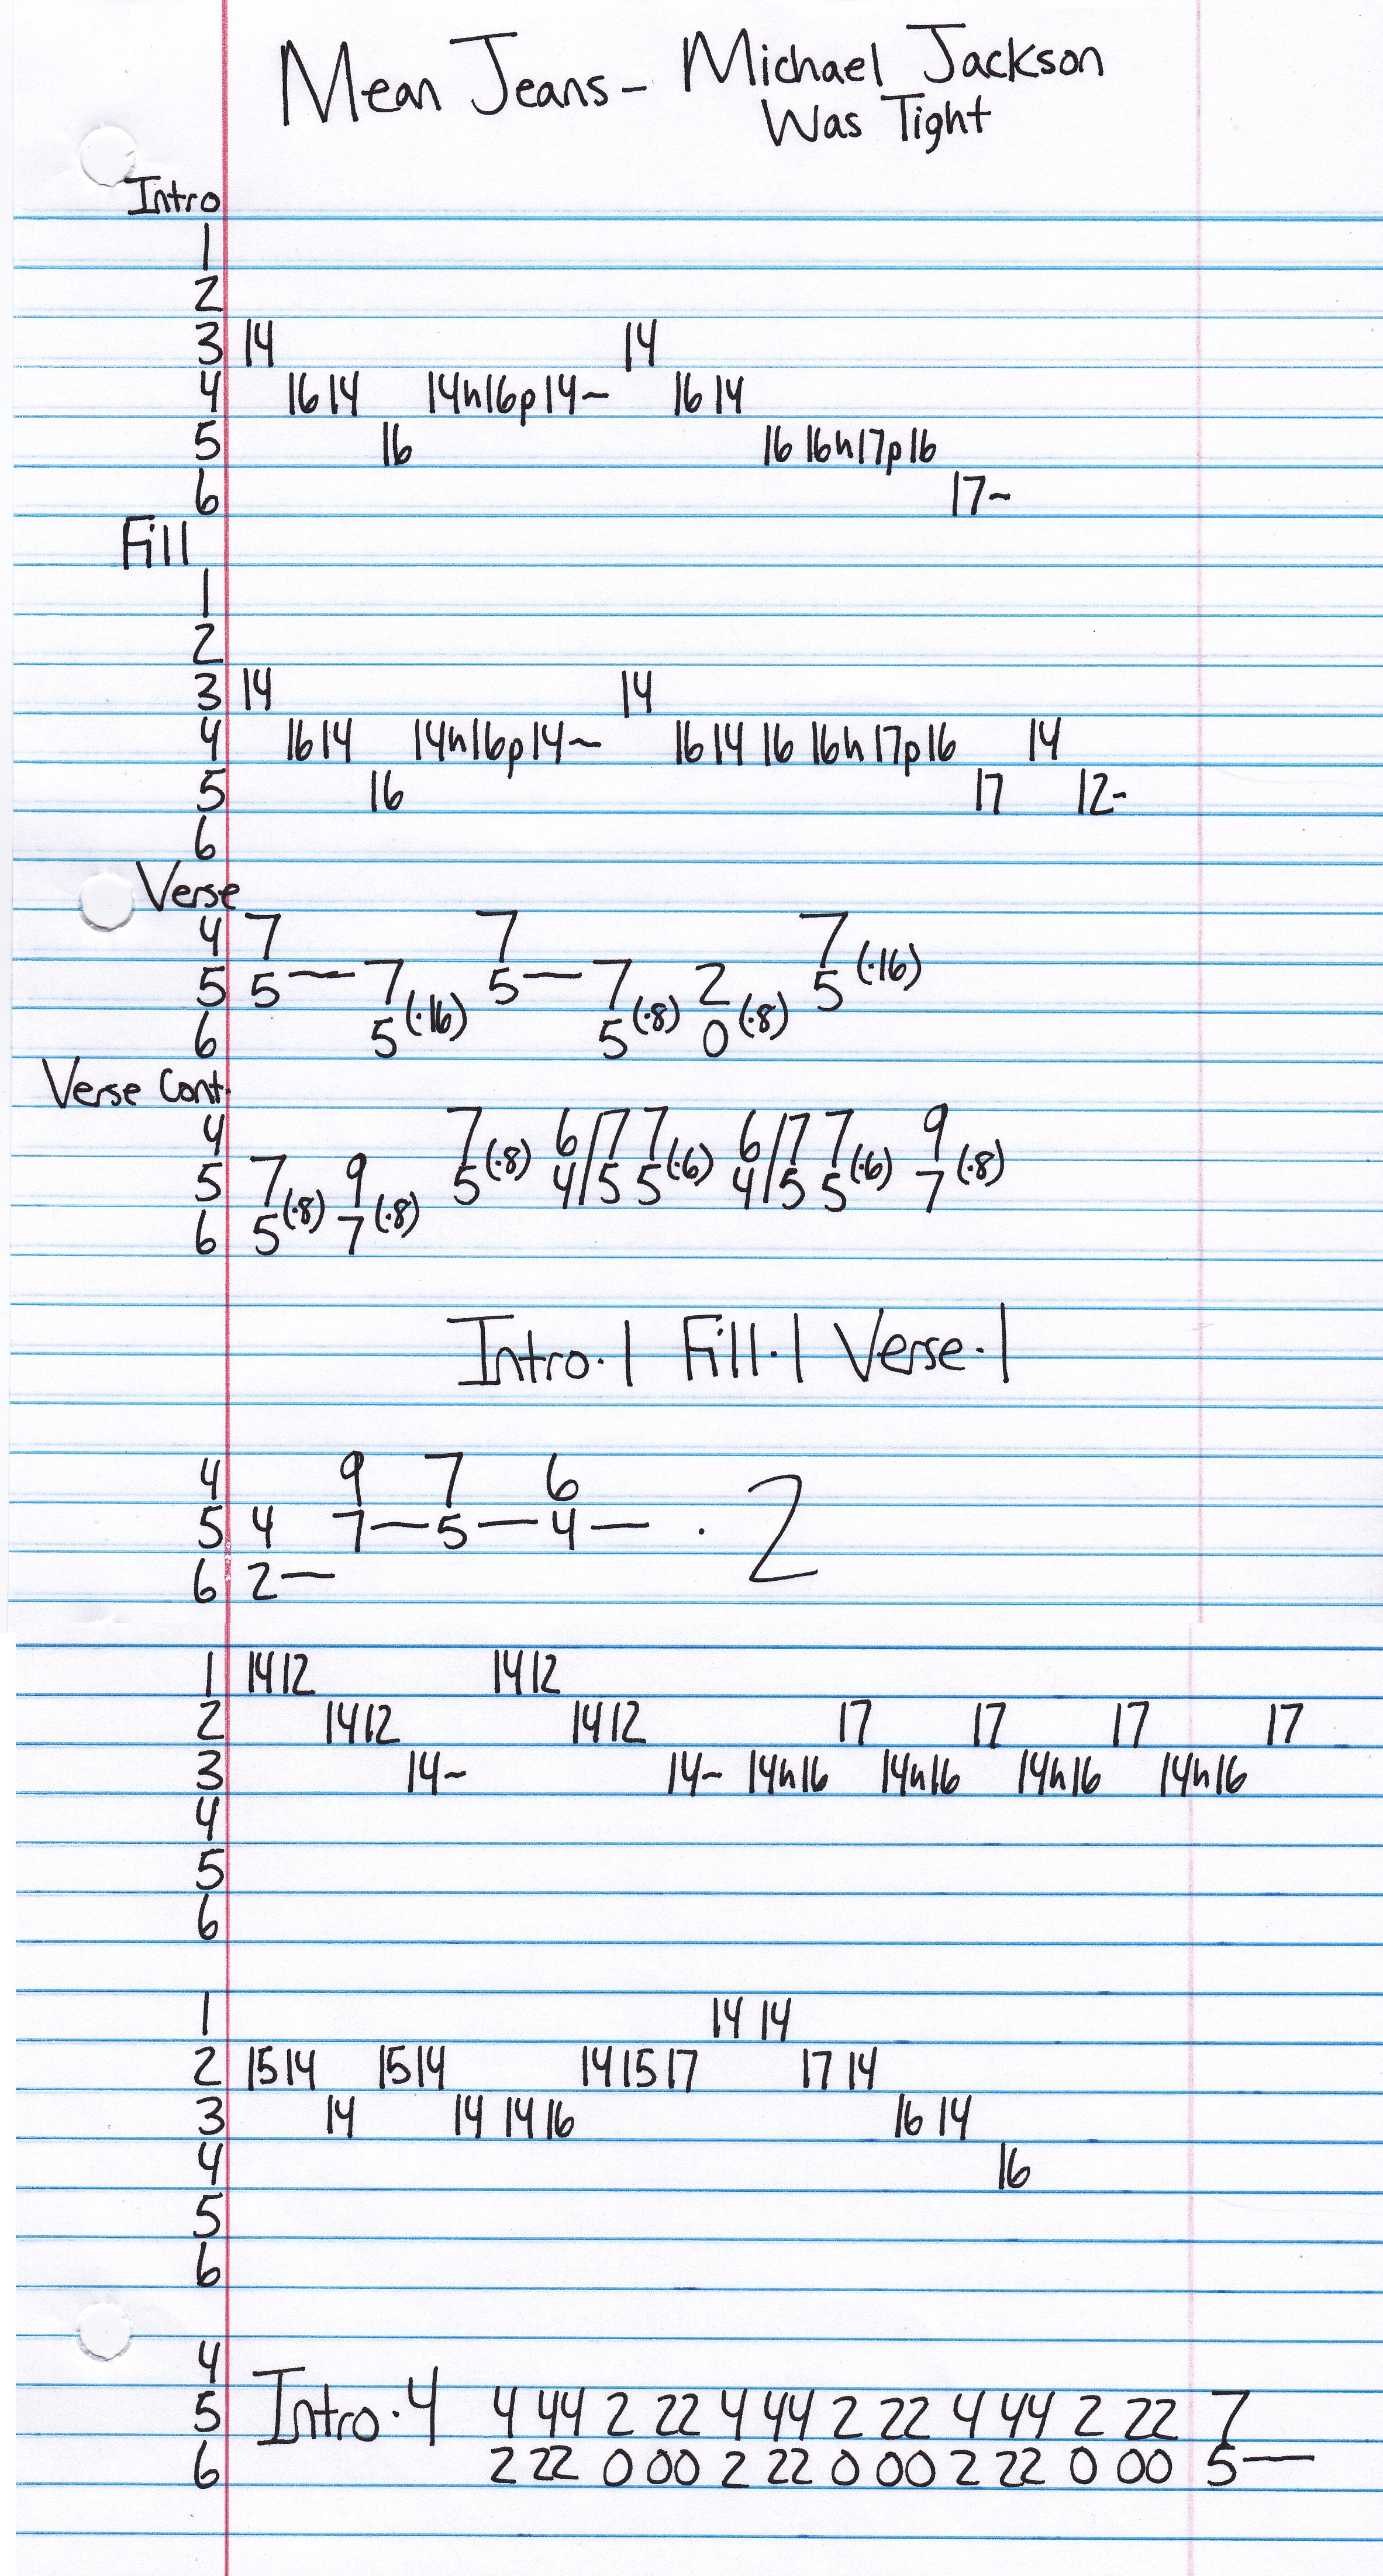 Mean Jeans - Michael Jackson
Was Tight
Intro
1
2
3 14 14
4 16 14 14h16p14~ 16 14
5 16 16 16h17p16
6 17~
Fill
1
2
3 14 14
4 16 14 14h16p14~ 16 14 16 16h17p16 14
5 16 17 12~
6
Verse
4 7 7 7
5 5— 7 5— 7 2 5 (·16)
6 5 (·16) 5 (·8) 0 (·8)
Verse Cont.
4 7 6/7 7 6/7 7 9
5 7 9 5 (·8) 4/5 5 (·6) 4/5 5 (·6) 7 (·8)
6 5 (·8) 7 (·8)
Intro·1 Fill·1 Verse·1
4 9 7 6
5 4 7—5—4— · 2
6 2—
1 14 12 14 12
2 14 12 14 12 17 17 17 17
3 14~ 14~ 14h16 14h16 14h16 14h16
4
5
6
1 14 14
2 15 14 15 14 14 15 17 17 14
3 14 14 14 16 16 14
4 16
5
6
4
5 Intro·4 4 44 2 22 4 44 2 22 4 44 2 22 7
6 2 22 0 00 2 22 0 00 2 22 0 00 5—